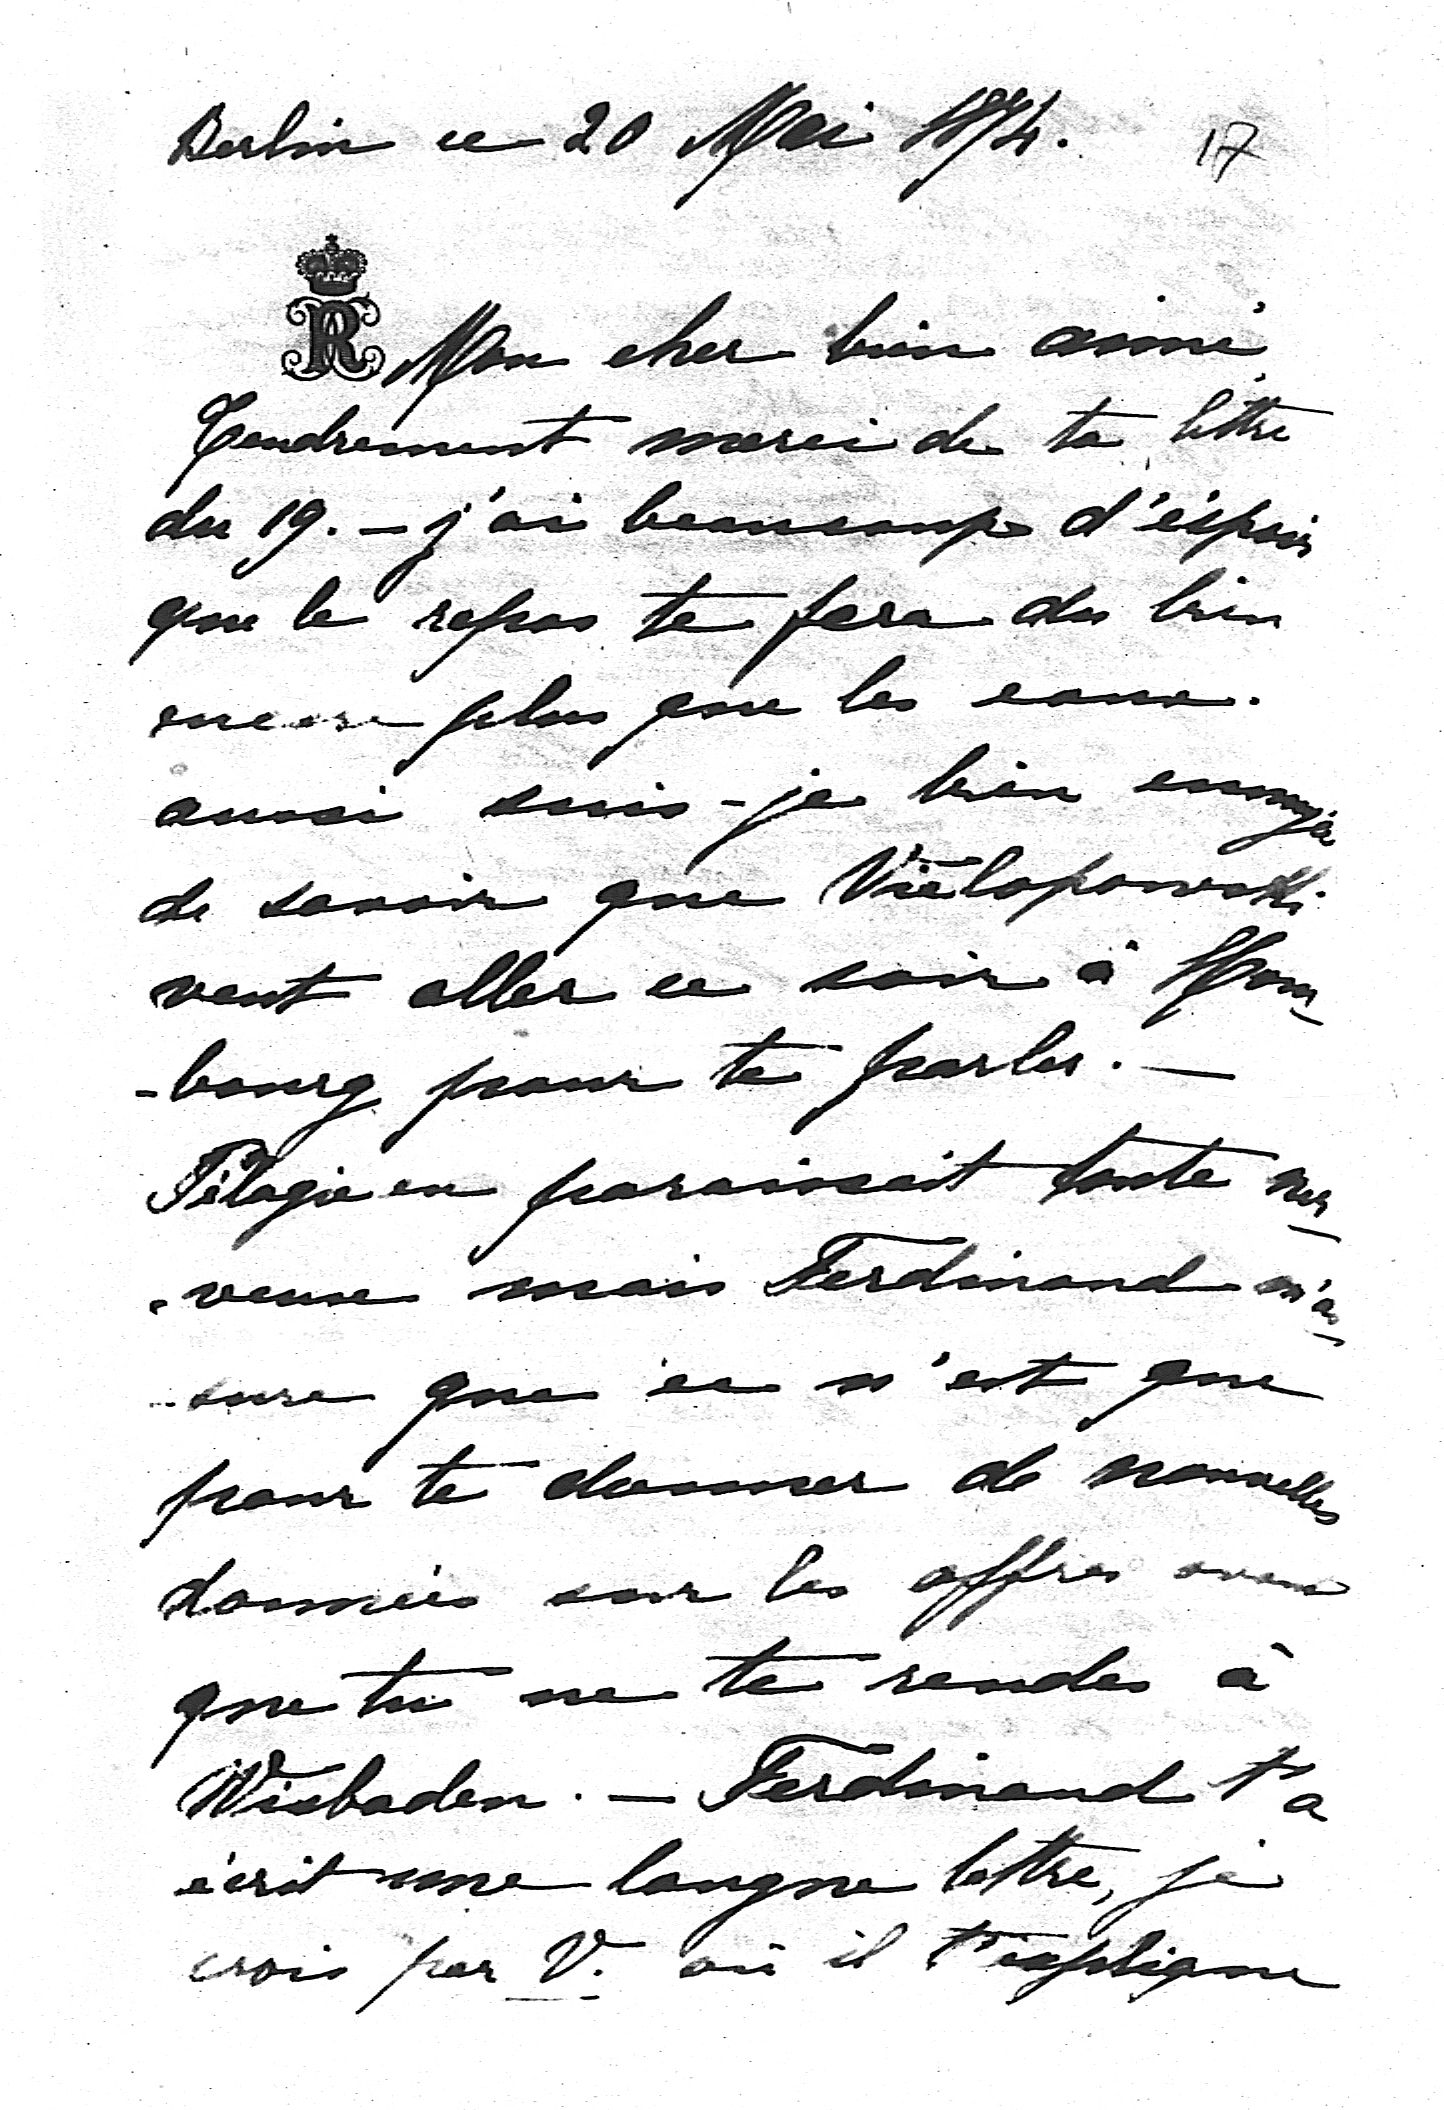 Berlin ce 20 Mai 1874.
17
Mon cher bien aimé,
Tendrement merci de ta lettre
du 19. – j'ai beaucoup d'éspoir
que le repos te fera du bien
encore plus que les eaux.
aussi suis-je bien ennuyée
de savoir que Viélopowski
veut aller ce soir à Hom-
-bourg pour te parler. —
Pélagie en paraissait toute ner-
-veuse mais Ferdinand m'as-
-sure que ce n'est que
pour te donner de nouvelles
données sur les offres avant
que tu ne te rendes à
Wisbaden. — Ferdinand t'a
écrit une longue lettre, je
crois par V. où il t'explique